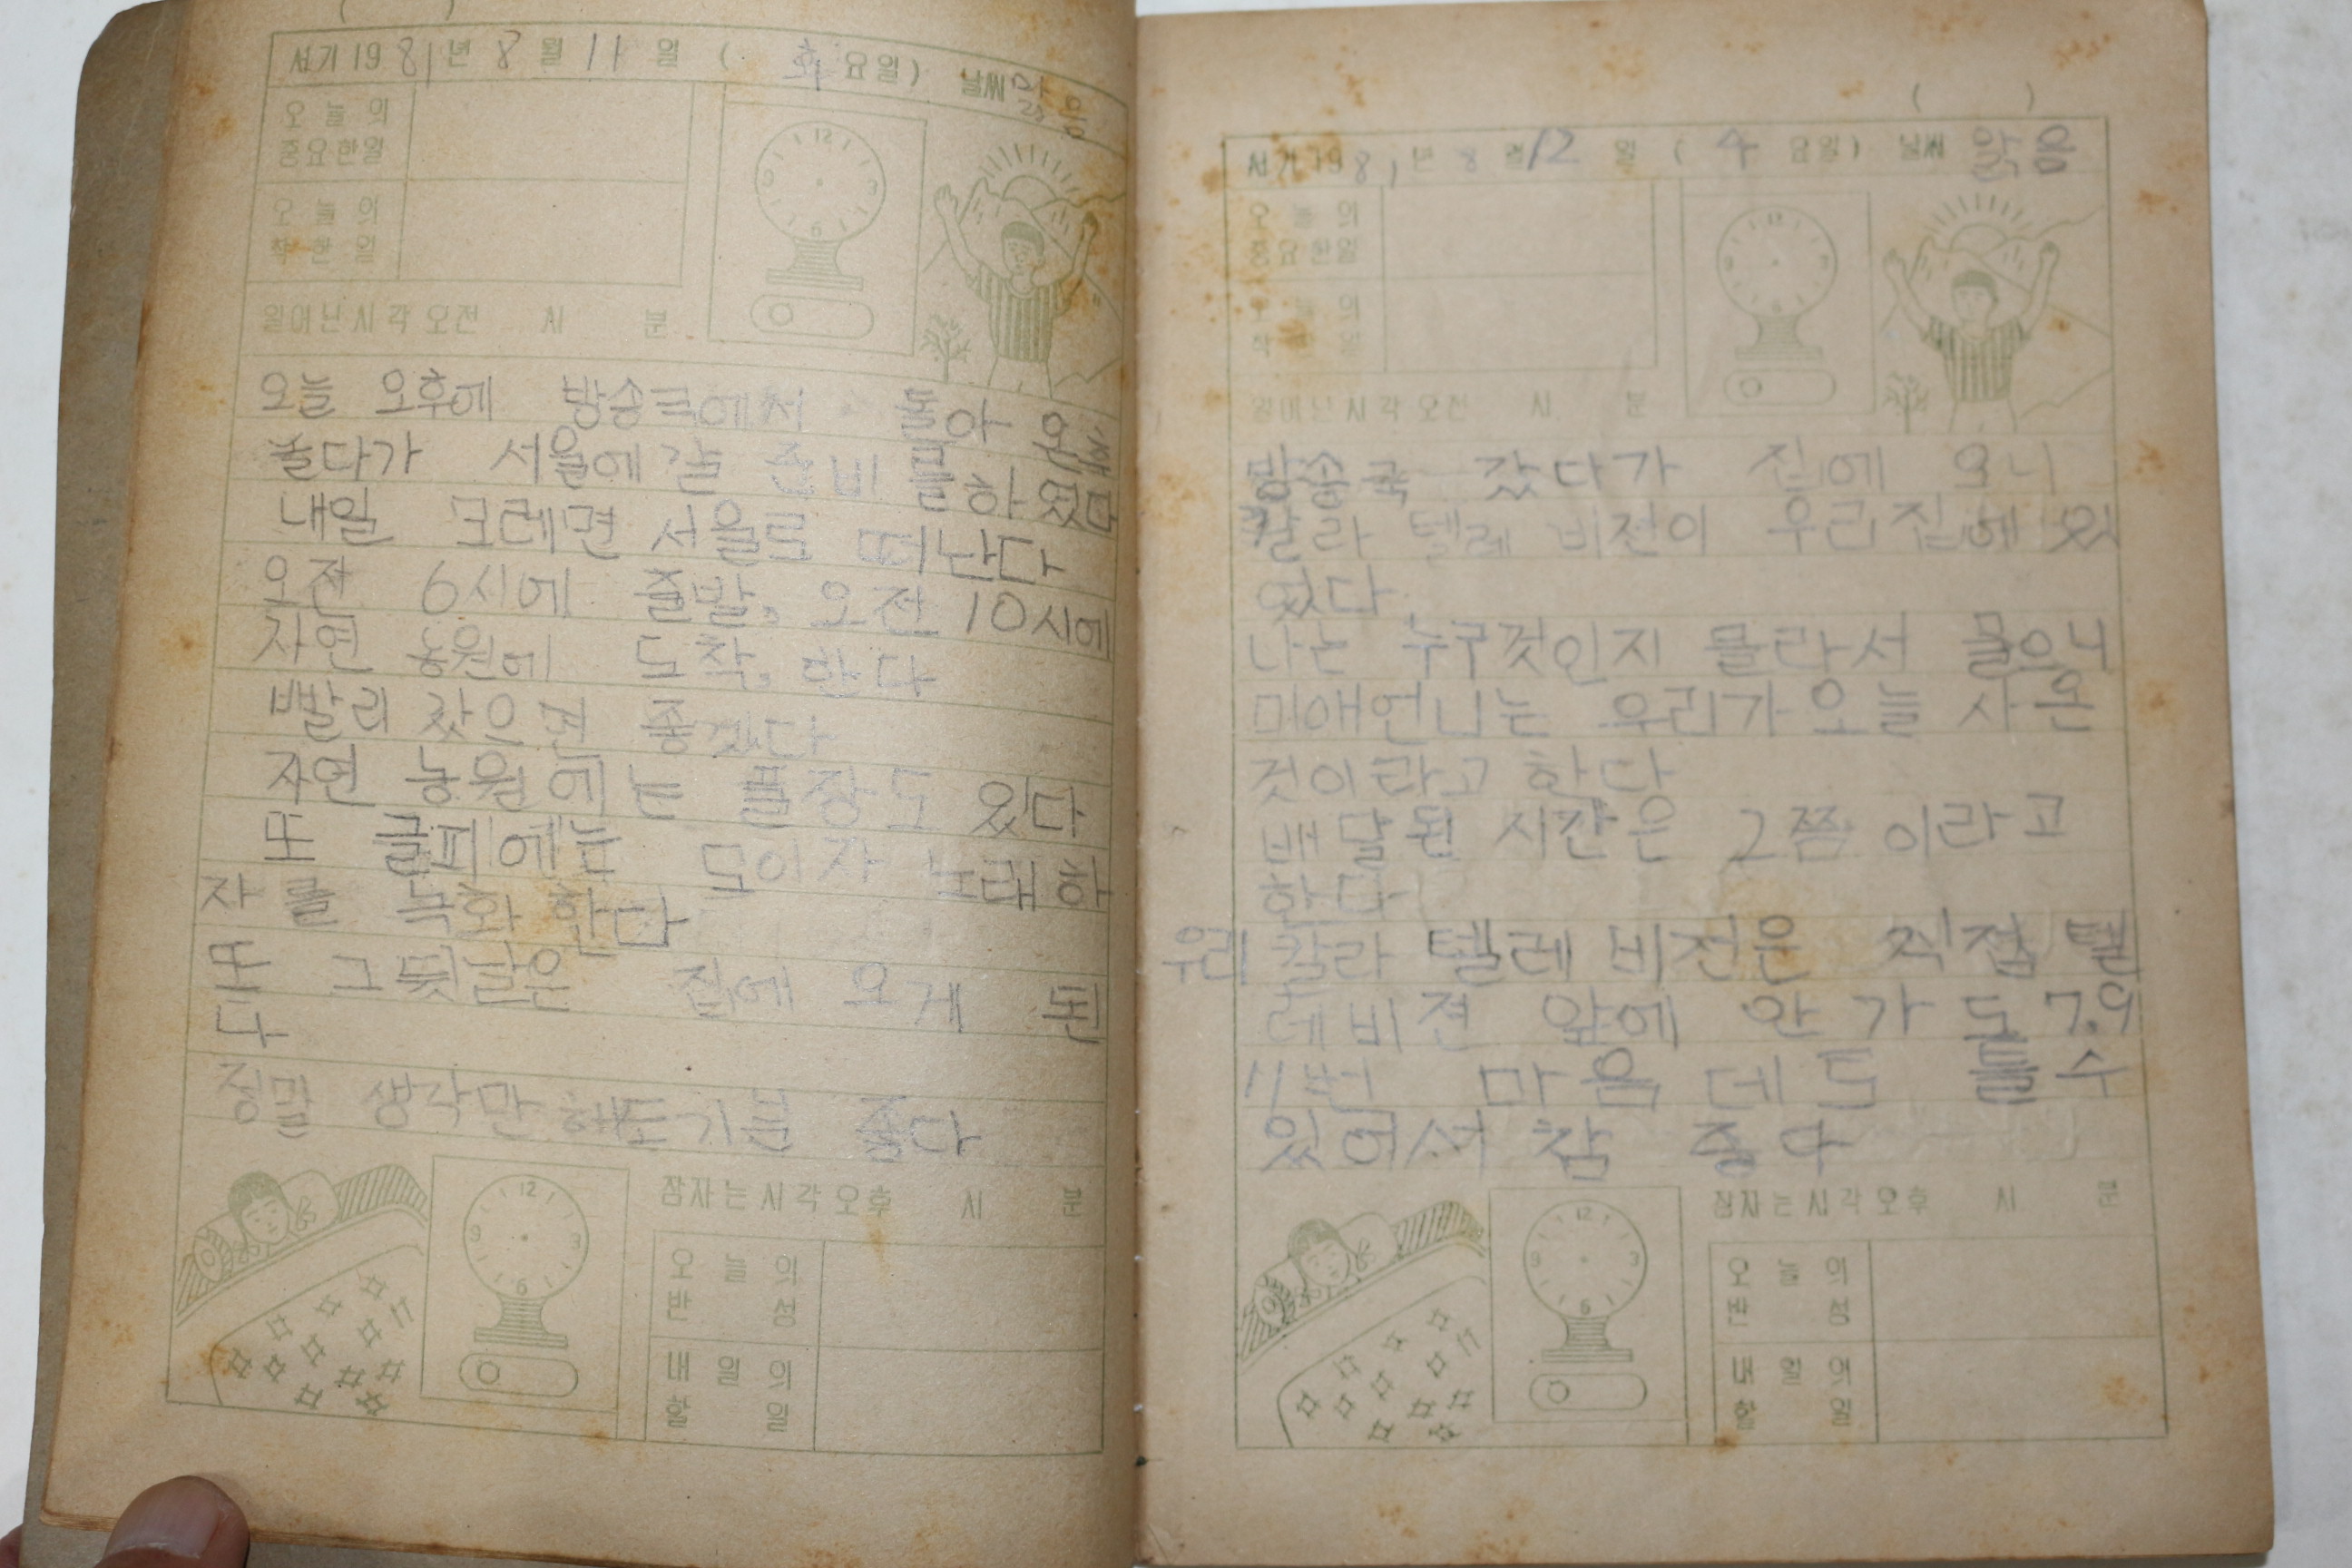 서기 1981년 8월 11일 ( 화요일) 날씨 맑음
오늘의
중요한일
오늘의
착한일
일어난시각 오전 시 분
오늘 오후에 방송국에서 돌아 온후
놀다가 서울에 갈 준비 를하였다
내일 모레면 서울로 떠난다
오전 6시에 출발, 오전 10시에
자연 농원에 도착, 한다
빨리 갔으면 좋겠다
자연 농원에는 풀장도 있다
또 글피에는 모이자 노래하
자를 녹화 한다
또 그뒷날은 집에 오게 된
다
정말 생각만 해도기분 좋다
12
3
6
9
잠자는시각 오후 시 분
오늘의
반성
내일의
할일
서기 1981년 8월 12일 ( 수요일) 날씨 맑음
오늘의
중요한일
오늘의
착한일
일어난시각 오전 시 분
방송국 갔다가 집에 오니
칼라 텔레비전이 우리집에 있
었다.
나는 누구것인지 몰라서 물으니
미애언니는 우리가오늘 사온
것이라고 한다
배달된 시간은 2쯤 이라고
한다
우리 칼라 텔레비전은 직접 텔
레비젼 앞에 안가도 7.9
11번 마음데로 틀수
있어서 참 좋다
12
3
6
9
잠자는시각 오후 시 분
오늘의
반성
내일의
할일